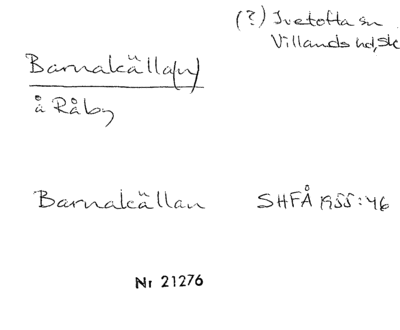 (?) Ivetofta sn
Villands hd, Sk
Barnakälla(n)
å Råby
Barnakällan SHFÅ 1955:46
Nr 21276